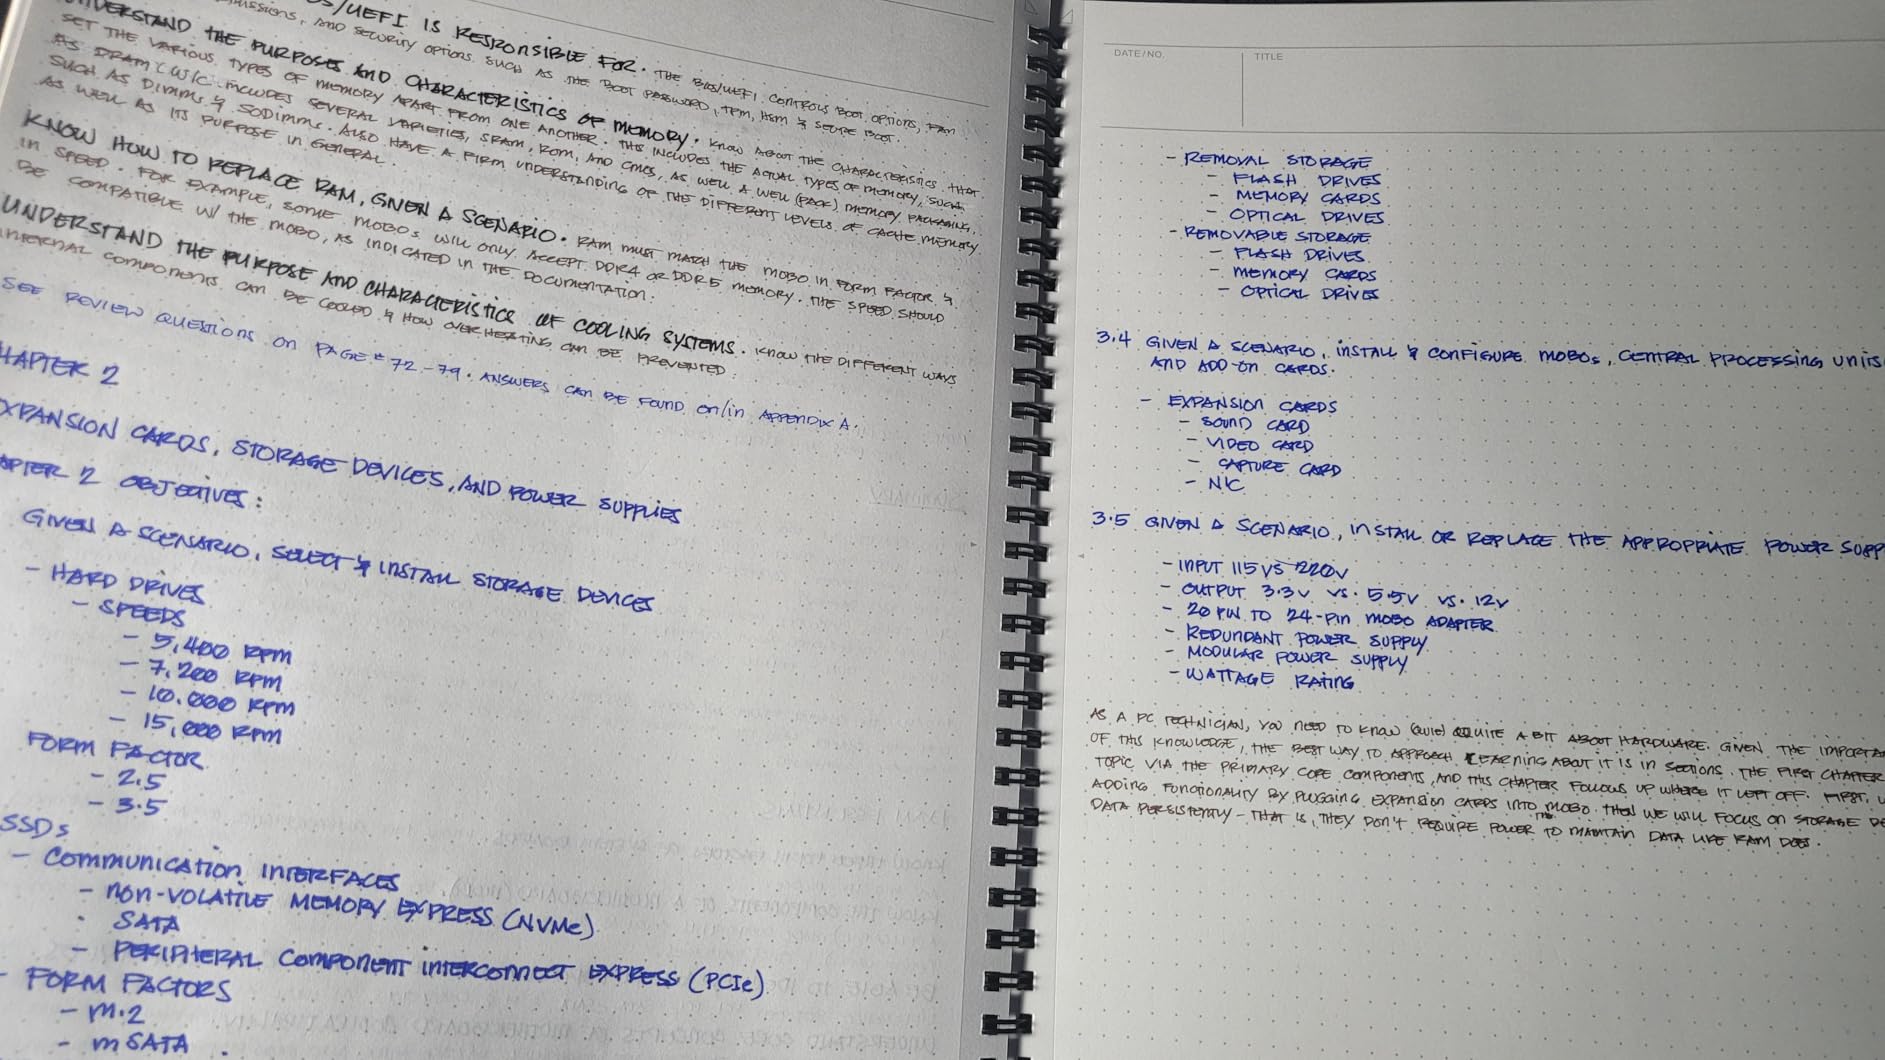 OS/UEFI IS RESPONSIBLE FOR. THE BIOS/UEFI CONTROLS BOOT OPTIONS, FAN
PERMISSIONS, AND SECURITY OPTIONS SUCH AS THE BOOT PASSWORD, TPM, HSM & SECURE BOOT.
UNDERSTAND THE PURPOSES AND CHARACTERISTICS OF MEMORY. KNOW ABOUT THE CHARACTERISTICS THAT
SET THE VARIOUS TYPES OF MEMORY APART FROM ONE ANOTHER. THIS INCLUDES THE ACTUAL TYPES OF MEMORY, SUCH
AS DRAM (W/C INCLUDES SEVERAL VARIETIES, SRAM, ROM, AND CMOS, AS WELL A WELL (PACK) MEMORY PACKAGING,
SUCH AS DIMMs & SODIMMs. ALSO HAVE A FIRM UNDERSTANDING OF THE DIFFERENT LEVELS OF CACHE MEMORY
AS WELL AS ITS PURPOSE IN GENERAL.
KNOW HOW TO REPLACE RAM, GIVEN A SCENARIO. RAM MUST MATCH THE MOBO IN FORM FACTOR &
IN SPEED. FOR EXAMPLE, SOME MOBOs WILL ONLY ACCEPT DDR4 OR DDR5 MEMORY. THE SPEED SHOULD
BE COMPATIBLE W/ THE MOBO, AS INDICATED IN THE DOCUMENTATION.
UNDERSTAND THE PURPOSE AND CHARACTERISTICS OF COOLING SYSTEMS. KNOW THE DIFFERENT WAYS
INTERNAL COMPONENTS CAN BE COOLED & HOW OVERHEATING CAN BE PREVENTED.
SEE REVIEW QUESTIONS ON PAGE # 72-79. ANSWERS CAN BE FOUND ON/IN APPENDIX A.
HAPTER 2
XPANSION CARDS, STORAGE DEVICES, AND POWER SUPPLIES
APTER 2 OBJECTIVES:
GIVEN A SCENARIO, SELECT & INSTALL STORAGE DEVICES
- HARD DRIVES
- SPEEDS
- 5,400 RPM
- 7,200 RPM
- 10.000 RPM
- 15,000 RPM
FORM FACTOR
- 2.5
- 3.5
SSDs
- COMMUNICATION INTERFACES
- NON-VOLATILE MEMORY EXPRESS (NVMe)
- SATA
- PERIPHERAL COMPONENT INTERCONNECT EXPRESS (PCIe)
- FORM FACTORS
- M.2
- mSATA
DATE/NO.
TITLE
- REMOVAL STORAGE
- FLASH DRIVES
- MEMORY CARDS
- OPTICAL DRIVES
- REMOVABLE STORAGE
- FLASH DRIVES
- MEMORY CARDS
- OPTICAL DRIVES
3.4 GIVEN A SCENARIO, INSTALL & CONFIGURE MOBOs, CENTRAL PROCESSING UNITS
AND ADD-ON CARDS.
- EXPANSION CARDS
- SOUND CARD
- VIDEO CARD
- CAPTURE CARD
- NIC
3.5 GIVEN A SCENARIO, INSTALL OR REPLACE THE APPROPRIATE POWER SUPP
- INPUT 115 VS 220V
- OUTPUT 3.3V VS. 5.5V VS. 12V
- 20 PIN TO 24-PIN MOBO ADAPTER
- REDUNDANT POWER SUPPLY
- MODULAR POWER SUPPLY
- WATTAGE RATING
AS A PC TECHNICIAN, YOU NEED TO KNOW QUITE A BIT ABOUT HARDWARE. GIVEN THE IMPORTA
OF THIS KNOWLEDGE, THE BEST WAY TO APPROACH LEARNING ABOUT IT IS IN SECTIONS. THE FIRST CHAPTER
TOPIC VIA THE PRIMARY CORE COMPONENTS, AND THIS CHAPTER FOLLOWS UP WHERE IT LEFT OFF. FIRST, W
ADDING FUNCTIONALITY BY PLUGGING EXPANSION CARDS INTO THE MOBO. THEN WE WILL FOCUS ON STORAGE DE
DATA PERSISTENTLY - THAT IS, THEY DON'T REQUIRE POWER TO MAINTAIN DATA LIKE RAM DOES.